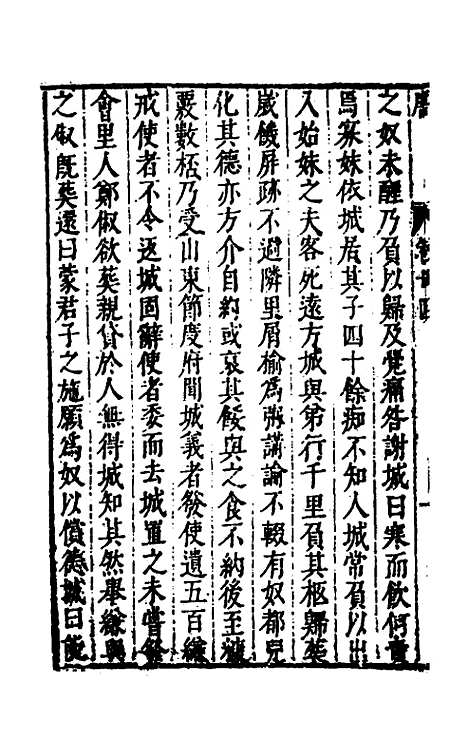 之奴未醒乃負以歸及覺痛咎謝城曰寒而飲何責
焉寡妹依城居其子四十餘痴不知人城常負以出
入始妹之夫客死遠方城與弟行千里負其柩歸葬
歲饑屏跡不過隣里屑榆為粥講論不輟有奴都兒
化其德亦方介自約或哀其餒與之食不納後至糠
覈數桮乃受山東節度府聞城義者發使遺五百縑
戒使者不令返城固辭使者委而去城置之未嘗發
會里人鄭俶欲葬親貸於人無得城知其然舉縑與
之俶旣葬還曰蒙君子之施願為奴以償德城曰